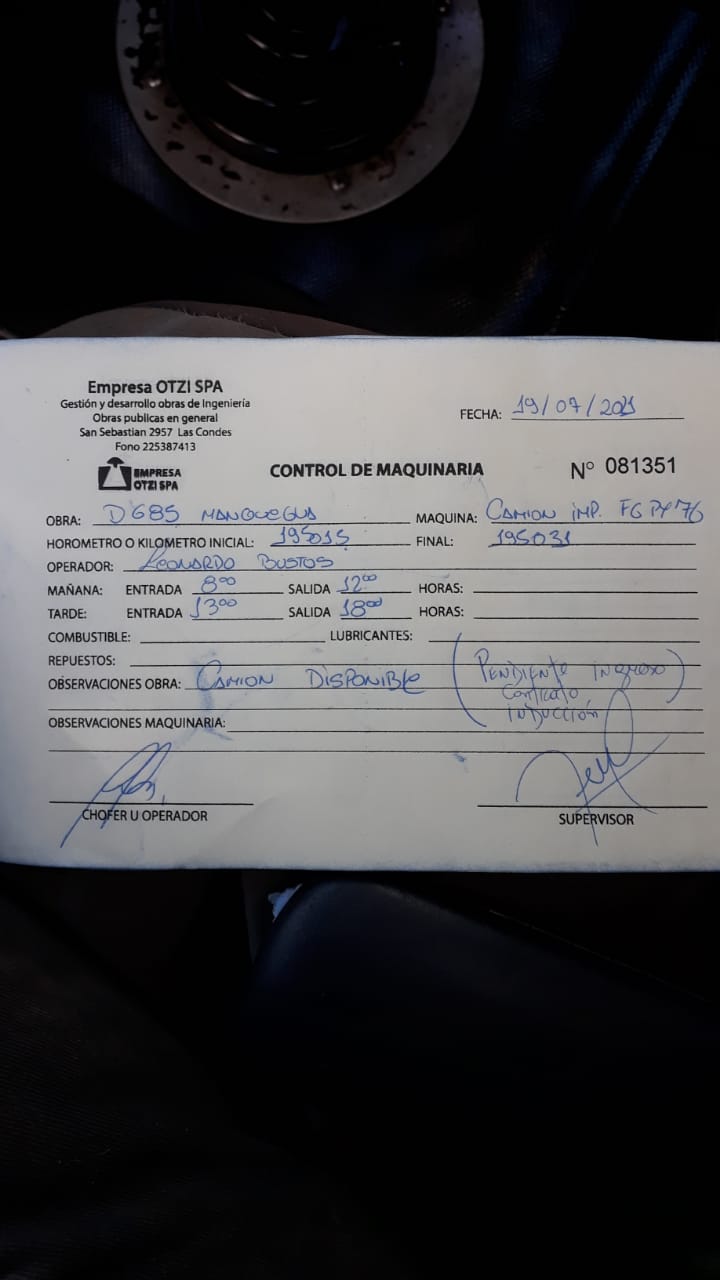 Empresa OTZI SPA
Gestión y desarrollo obras de Ingeniería
Obras publicas en general
San Sebastian 2957 Las Condes
Fono 225387413
FECHA: 19/07/2021
EMPRESA
OTZI SPA
CONTROL DE MAQUINARIA
N° 081351
OBRA: D685 MANQUEGUA MAQUINA: CAMION IMP. FGPY76
HOROMETRO O KILOMETRO INICIAL: 195015 FINAL: 195031
OPERADOR: LEONARDO BUSTOS
MAÑANA: ENTRADA 8:00 SALIDA 12:00 HORAS:
TARDE: ENTRADA 13:00 SALIDA 18:00 HORAS:
COMBUSTIBLE: LUBRICANTES:
REPUESTOS:
OBSERVACIONES OBRA: CAMION DISPONIBLE (PENDIENTE INGRESO
CONTRATO
INDUCCIÓN)
OBSERVACIONES MAQUINARIA:
CHOFER U OPERADOR SUPERVISOR